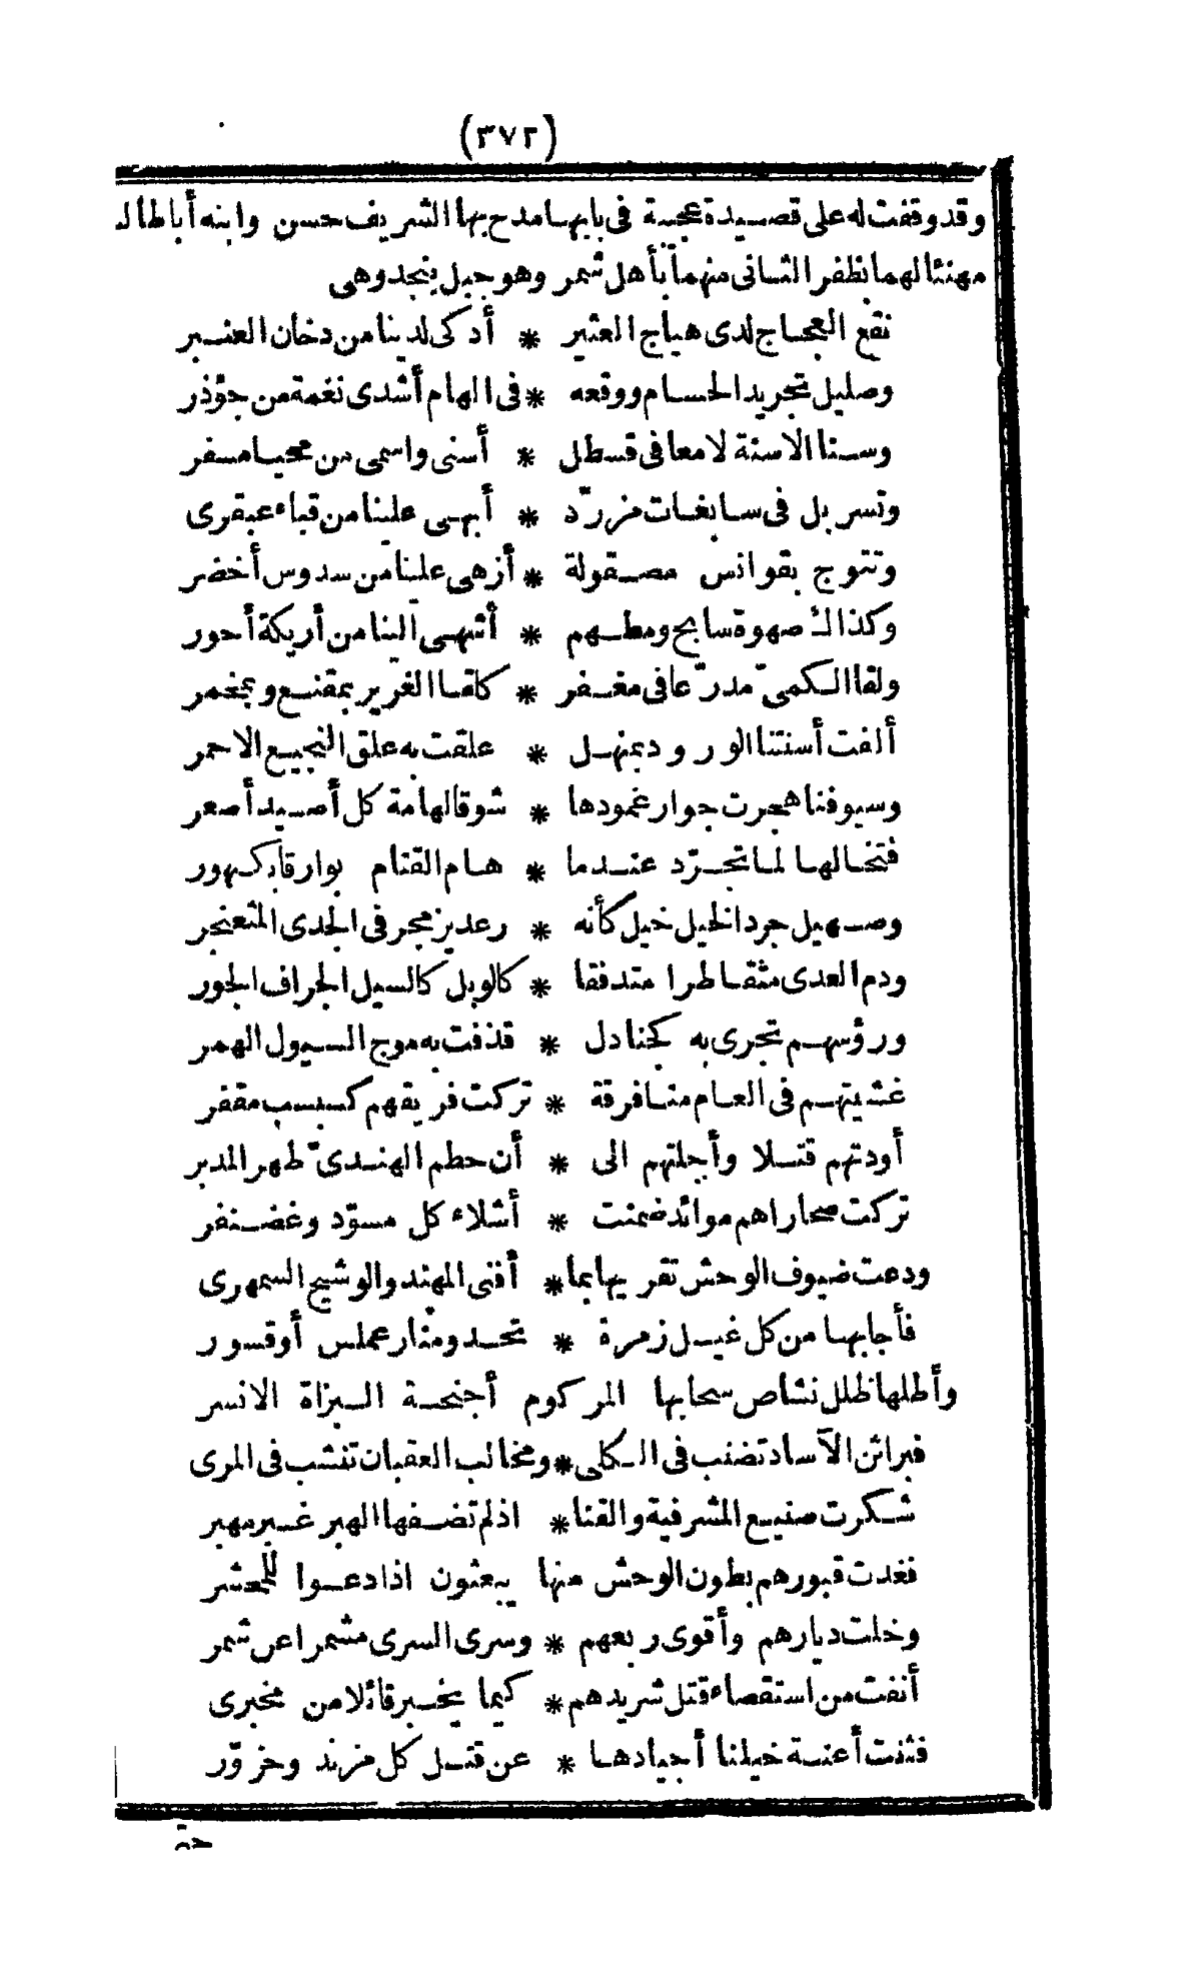 (٣٧٢)
وقد وقفت له على قصيدة عجيبة فى بابها مدح بها الشريف حسن وابنه أباطالب
مهنئا لهما بظفر الثانى منهما بأهل شمر وهو جبل بنجد وهى
نقع العجاج لدى هياج العثير * أذكى لدينا من دخان العنبر
وصليل تجريد الحسام ووقعه * فى الهام أشدى نغمة من جؤذر
وسنا الاسنة لامعا فى قسطل * أسنى واسمى من محيا مسفر
وتسربل فى سابغات مزرّد * أبهى علينا من قباء عبقرى
وتتوج بقوانس مصقولة * أزهى علينا من سدوس أخضر
وكذاك صهوة سابح ومطهم * أشهى الينا من أريكة أحور
ولقا الكمىّ مدرّعا فى مغفر * كلقا الغرير بمقنع وبمخمر
ألفت أسنتنا الورود بمنهل * علقت به علق النجيع الاحمر
وسيوفنا هجرت جوار غمودها * شوقا لهامة كل أصيد أصعر
فتخالها لما تجرّد عندما * هام القتام بوارقا بكهور
وصهيل جرد الخيل خيل كأنه * رعد يزمجر فى الجدى المثعنجر
ودم العدى متقاطرا متدفقا * كالوبل كالسيل الجراف الجور
ورؤسهم تجرى به كجنادل * قذفت به موج السيول الهمر
غشيتهم فى العام منا فرقة * تركت فريقهم كسبسب مقفر
أودتهم قتلا وأجلتهم الى * أن حطم الهندىّ ظهر المدبر
تركت صحاراهم موائد ضمنت * أشلاء كل مسوّد وغضنفر
ودعت ضيوف الوحش تقريها بما * أفنى المهند والوشيج السمهرى
فأجابها من كل غيل زمرة * تحدو مثار عملس أو قسور
وأظلها ظلل نشاص سحابها المركوم أجنحة البزاة الانسر
فبراثن الآساد تضنب فى الكلى * ومخالب العقبان تنشب فى المرى
شكرت صنيع المشرفية والقنا * اذ لم تضفها الهبر غير مهبر
فغدت قبورهم بطون الوحش منها يبعثون اذا دعوا للمحشر
وخلت ديارهم وأقوى ربعهم * وسرى السرى مشمرا عن شمر
أنفت من استقصاء قتل شريدهم * كيما يخبر قائلا من مخبرى
فثنت أعنة خيلنا أجيادها * عن قتل كل مزند وحزوّر
حتى